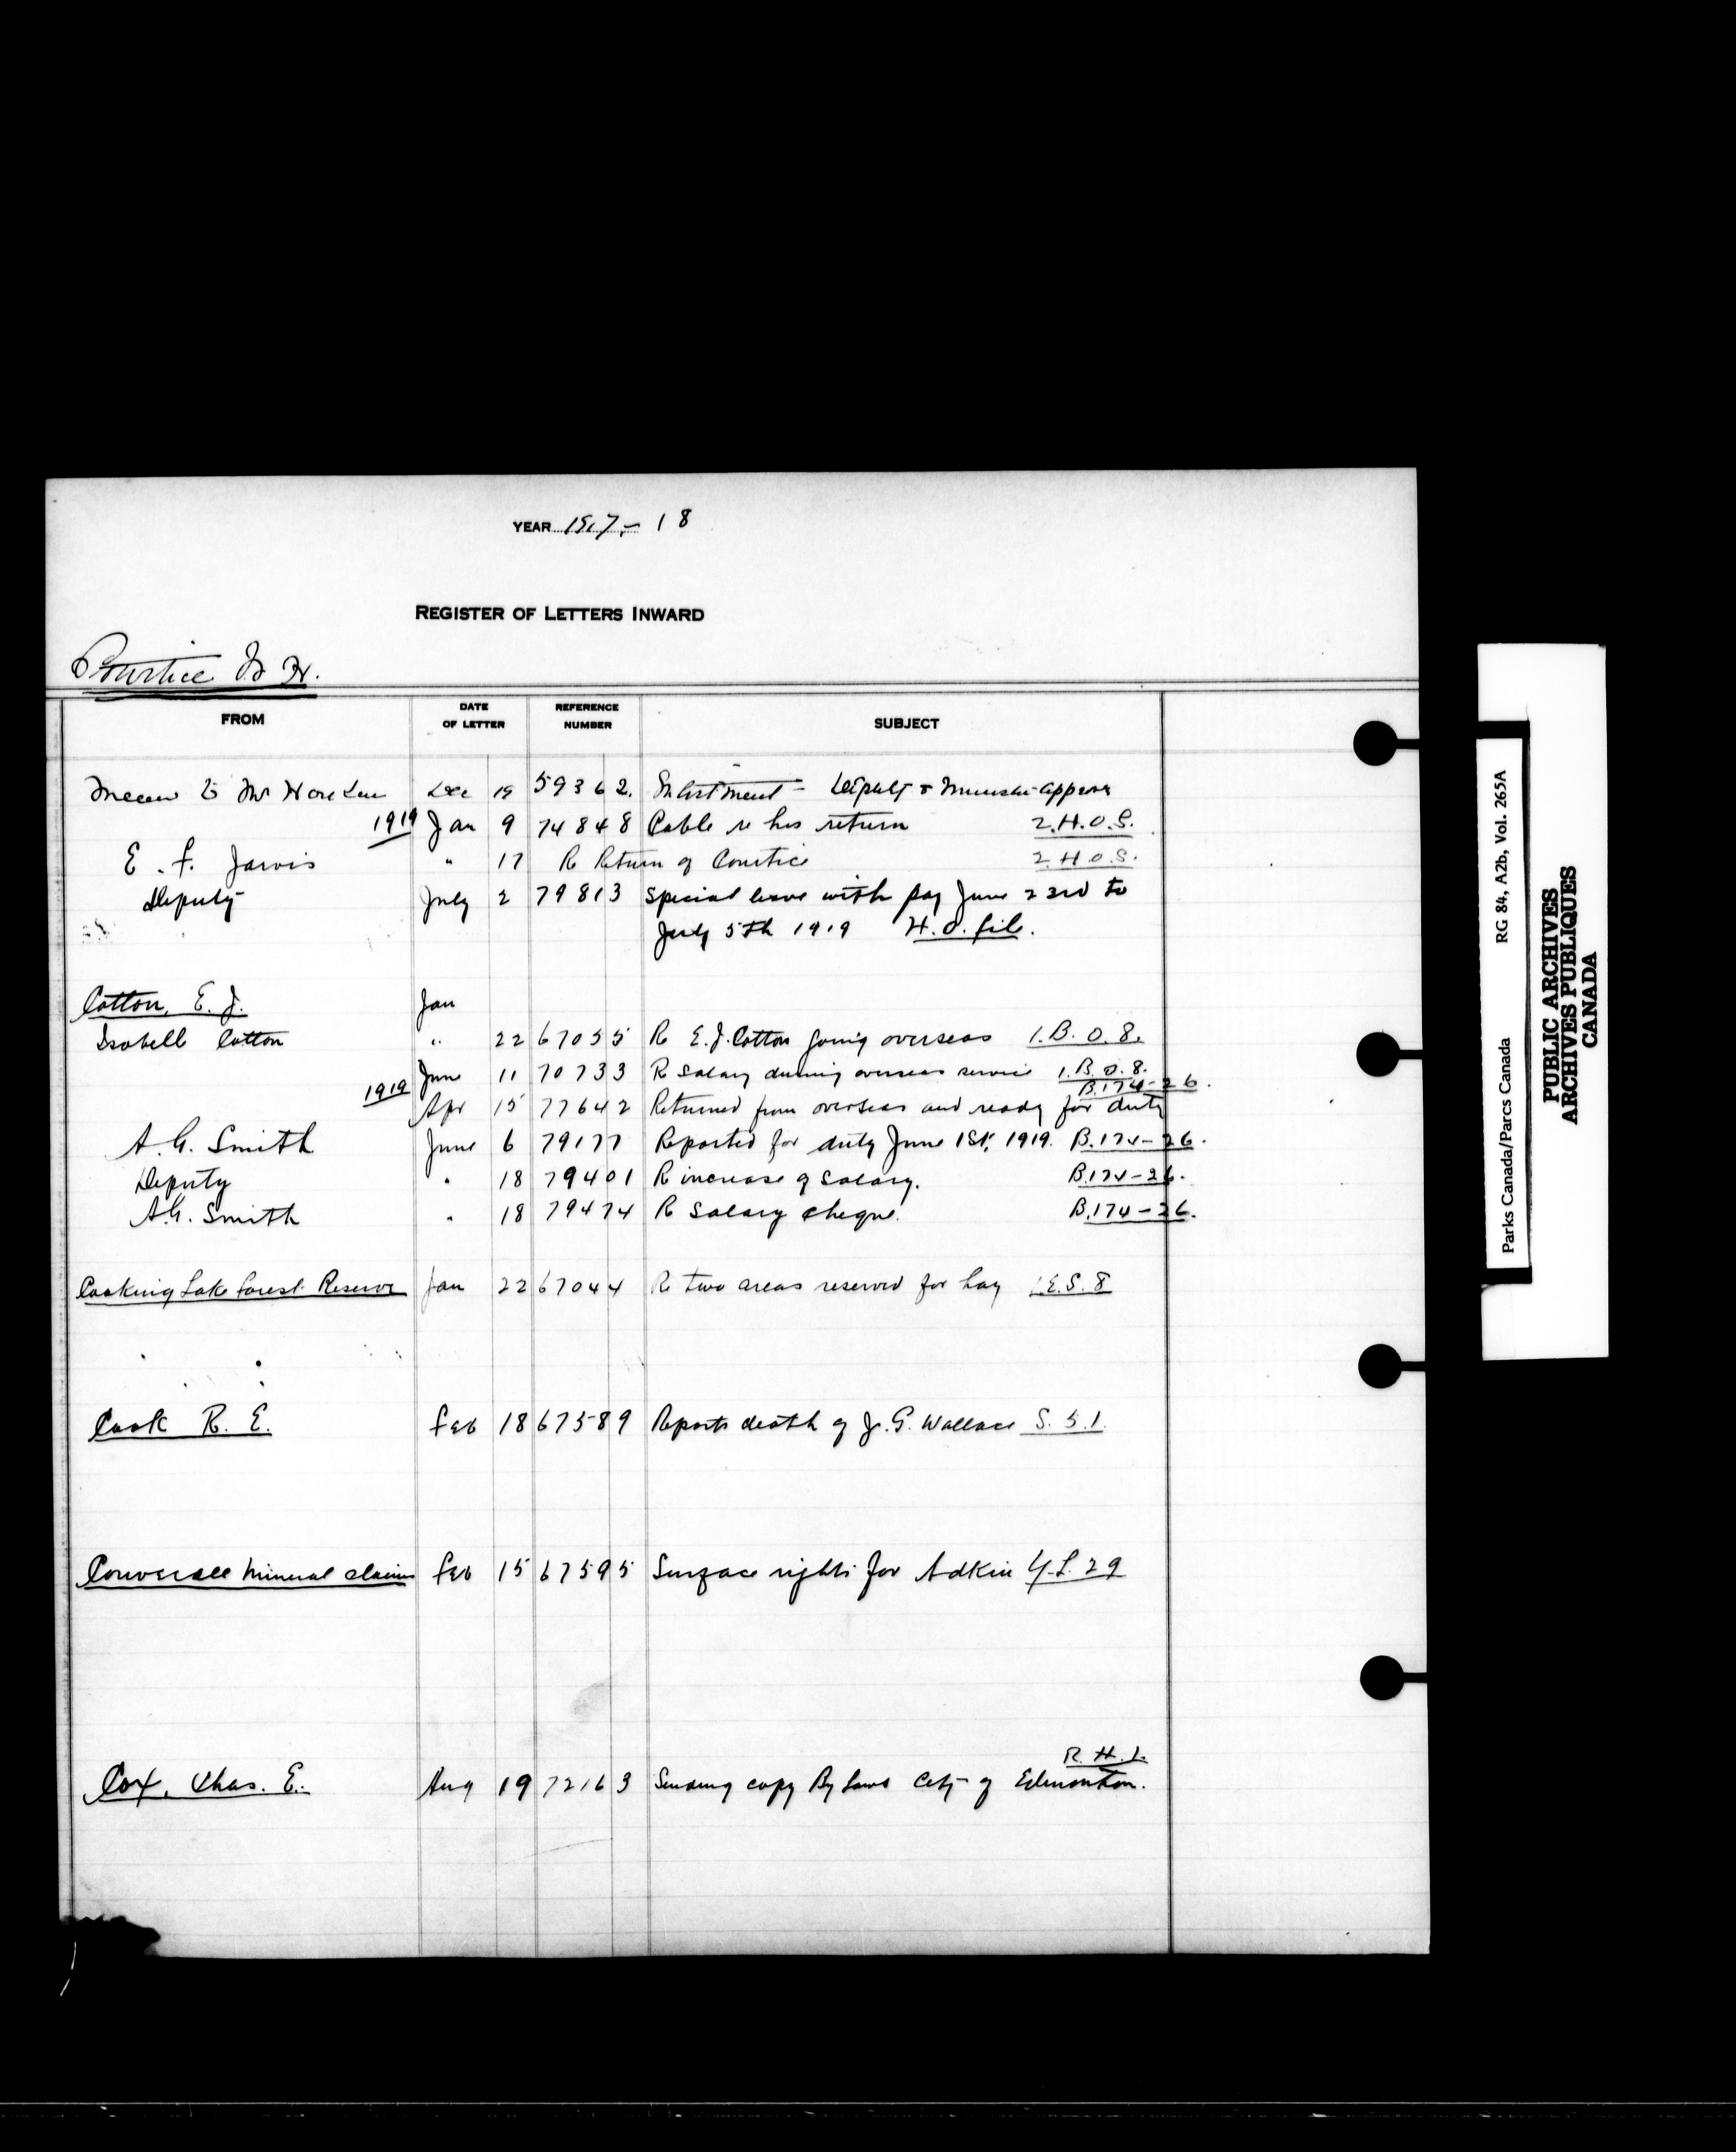 YEAR 1917-18
REGISTER OF LETTERS INWARD
Courtice
FROM DATE OF LETTER REFERENCE NUMBER SUBJECT
to Mr Dec 19 59362. Enlistment - Deputy & approve
1919 Jan 9 74848 Cable re his return 2.H.O.S.
E. F. Jarvis " 17 Re Return of Courtice 2.H.O.S.
Deputy July 2 79813 Special leave with pay June 23rd to
July 5th 1919 H.O. file.
Cotton, E. J. Jan
Isabell Cotton " 22 67055 Re E.J. Cotton going overseas 1.B.O.8.
June 11 70733 Re Salary during overseas service 1.B.O.8.
B.174-26.
1919 Apr 15 77642 Returned from overseas and ready for duty
A. G. Smith June 6 79177 Reported for duty June 1st, 1919. B.174-26.
Deputy " 18 79401 Re increase of salary. B.174-26.
A.G. Smith " 18 79474 Re Salary cheque. B.174-26.
Cooking Lake Forest Reserve Jan 22 67044 Re two areas reserved for hay 1.E.S.8
Cook R. E. Feb 18 67589 Reports death of J. G. Wallace S.51.
mineral claims Feb 15 67595 Surface rights for Adkin Y.L.29
R.H.1.
Cox, Chas. E. Aug 19 72163 Sending copy By Laws City of Edmonton.
Parks Canada/Parcs Canada RG 84, A2b, Vol. 265A
PUBLIC ARCHIVES
ARCHIVES PUBLIQUES
CANADA